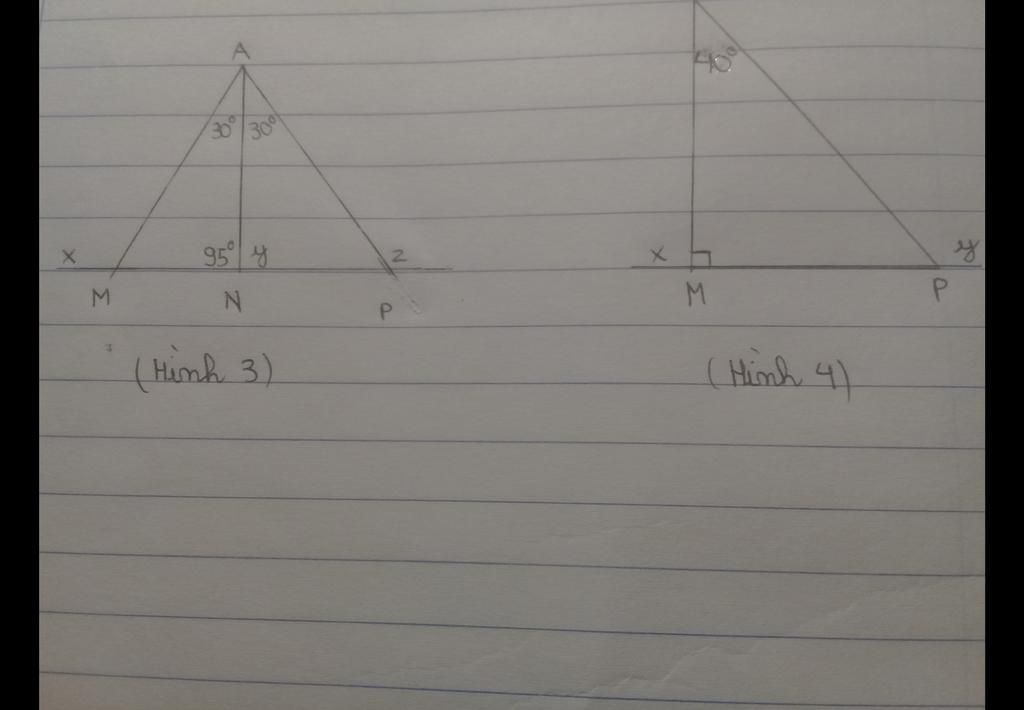 A
30° 30°
x 95° y z
M N P
(Hình 3)
40°
x y
M P
(Hình 4)